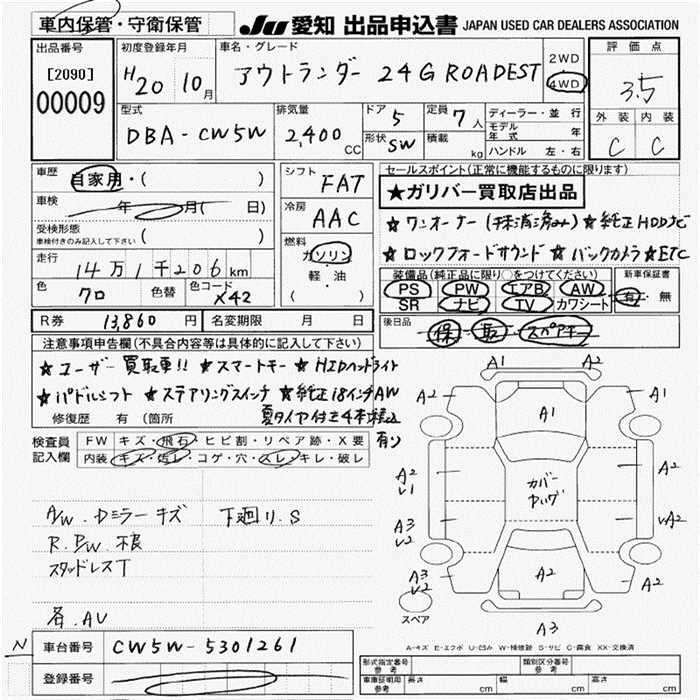 車内保管・守衛保管 JU 愛知 出品申込書 JAPAN USED CAR DEALERS ASSOCIATION
出品番号
[2090]
00009
初度登録年月
H20 10月
車名・グレード
アウトランダー 24G ROADEST
2WD
4WD
評価点
3.5
外装 内装
C C
型式
DBA-CW5W
排気量
2,400 CC
ドア 5
形状 SW
定員 7人
積載 kg
ディーラー・並行
モデル年式 年
ハンドル 左・右
車歴 自家用・( )
車検 年 月( 日)
受検形態
車検付きのみ記入して下さい ( )
走行
14万1千206km
色 クロ 色替 色コード X42
シフト FAT
冷房 AAC
燃料
ガソリン
軽・油
( )
セールスポイント(正常に機能するものに限ります)
★ガリバー買取店出品
★ワンオーナー(抹消済み) ★純正HDDナビ
★ロックフォードサウンド ★バックカメラ ★ETC
装備品(純正品に限り○をつけてください)
PS PW エアB AW
SR ナビ TV カワシート
新車保証書
有・無
R券 13,860円 名変期限 月 日
後日品 保 取 スペアキー
注意事項申告欄(不具合内容等は具体的に記入して下さい)
★ユーザー買取車!! ★スマートキー ★HIDヘッドライト
★パドルシフト ★ステアリングスイッチ ★純正18インチAW
夏タイヤ付き4本積込有り
修復歴 有 (箇所
検査員記入欄
FW キズ・飛石・ヒビ割・リペア跡・X要
内装 キズ・汚レ・コゲ・穴・スレ・キレ・破レ
A/W.Dミラーキズ 下廻り.S
R.P/W.不良
スタッドレスT
各.AU
A1 A2
A2 A1 A1
A2 A2
V1
カバー
A3 vA2
V2
A3 A2 A2
V2
スペア
A3
A-キズ E-エクボ U-凹み W-補修跡 S-サビ C-腐食 XX-交換済
N 車台番号 CW5W-5301261
登録番号
形式指定番号 参考 類別区分番号 参考
車庫証明用 参考 長さ cm 幅 cm 高さ cm